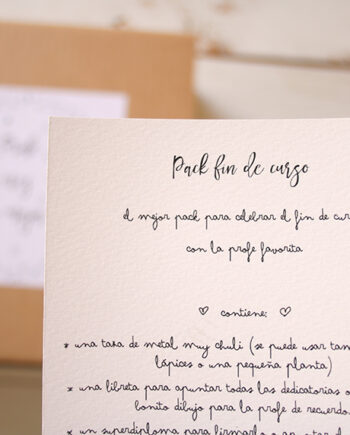 Pack fin de curso
el mejor pack para celebrar el fin de cur
con la profe favorita
♡ contiene: ♡
* una taza de metal muy chuli (se puede usar tam
lápices o una pequeña planta)
* una libreta para apuntar todas las dedicatorias o
bonito dibujo para la profe de recuerdo
* un superdiploma para firmarlo